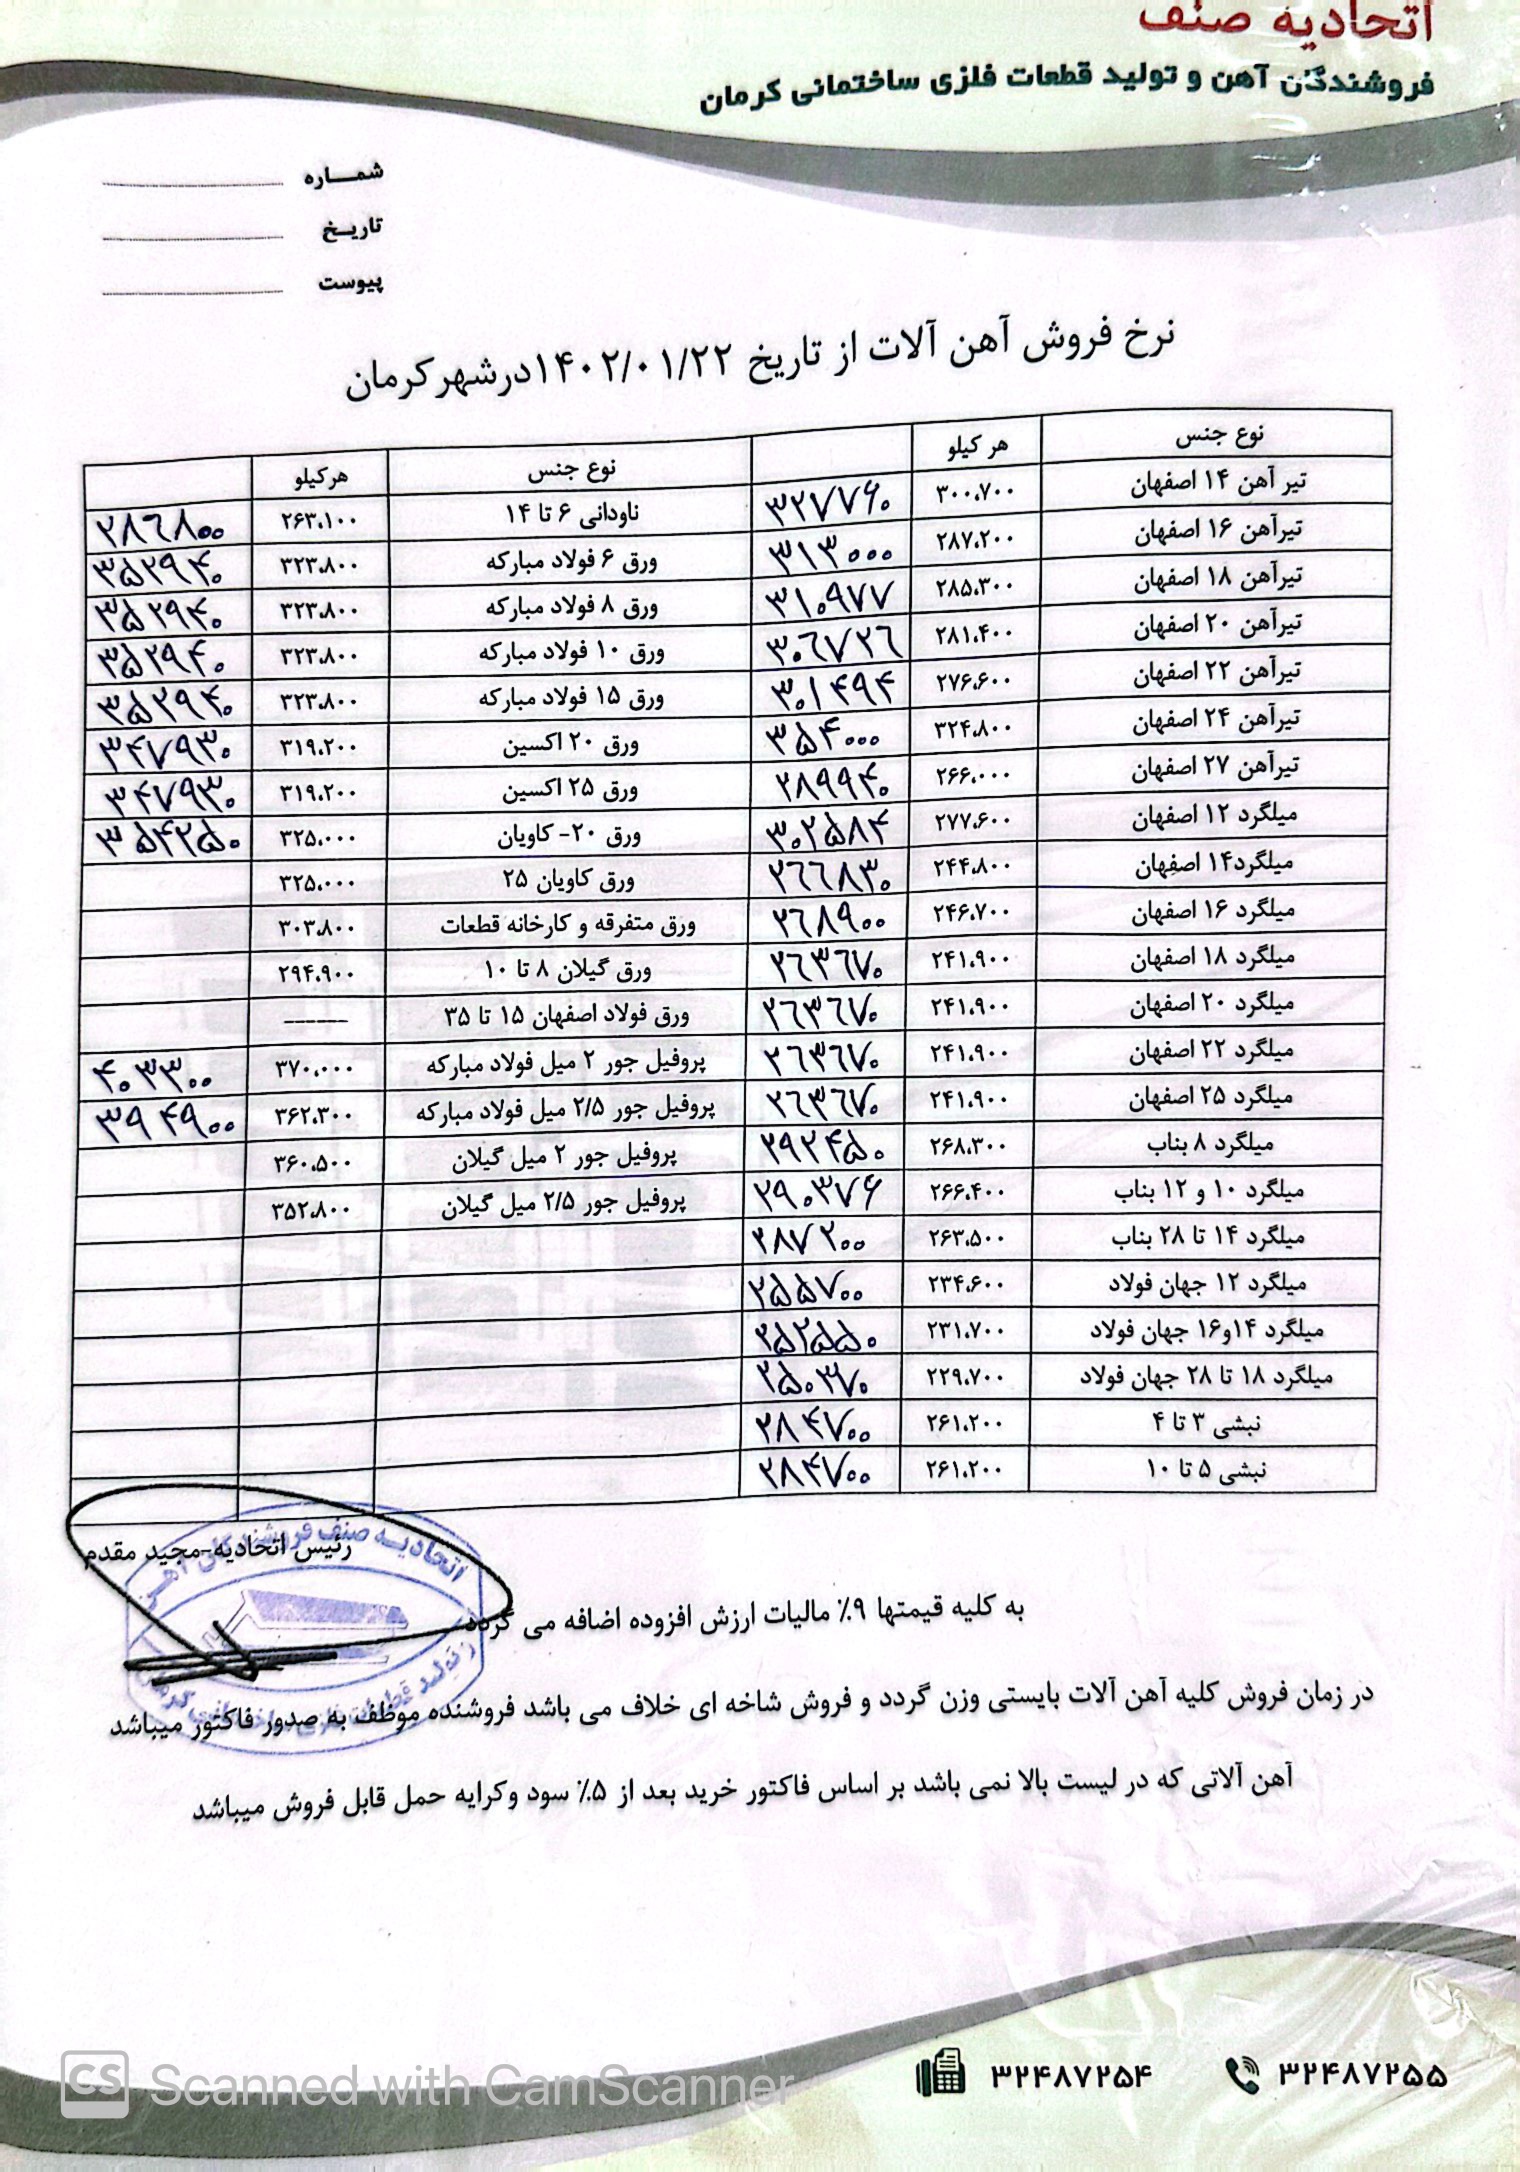 اتحادیه صنف
فروشندگان آهن و تولید قطعات فلزی ساختمانی کرمان
شمـــاره
تاریـخ
پیوست
نرخ فروش آهن آلات از تاریخ ۱۴۰۲/۰۱/۲۲درشهرکرمان
نوع جنس هر کیلو نوع جنس هرکیلو
تیر آهن ۱۴ اصفهان ۳۰۰،۷۰۰ ۳۲۷۷۶۰ ناودانی ۶ تا ۱۴ ۲۶۳،۱۰۰ ۲۸۶۸۰۰
تیرآهن ۱۶ اصفهان ۲۸۷،۲۰۰ ۳۱۳۰۰۰ ورق ۶ فولاد مبارکه ۳۲۳،۸۰۰ ۳۵۲۹۴۰
تیرآهن ۱۸ اصفهان ۲۸۵،۳۰۰ ۳۱۰۹۷۷ ورق ۸ فولاد مبارکه ۳۲۳،۸۰۰ ۳۵۲۹۴۰
تیرآهن ۲۰ اصفهان ۲۸۱،۴۰۰ ۳۰۶۷۲۶ ورق ۱۰ فولاد مبارکه ۳۲۳،۸۰۰ ۳۵۲۹۴۰
تیرآهن ۲۲ اصفهان ۲۷۶،۶۰۰ ۳۰۱۴۹۴ ورق ۱۵ فولاد مبارکه ۳۲۳،۸۰۰ ۳۵۲۹۴۰
تیرآهن ۲۴ اصفهان ۳۲۴،۸۰۰ ۳۵۴۰۰۰ ورق ۲۰ اکسین ۳۱۹،۲۰۰ ۳۴۷۹۳۰
تیرآهن ۲۷ اصفهان ۲۶۶،۰۰۰ ۲۸۹۹۴۰ ورق ۲۵ اکسین ۳۱۹،۲۰۰ ۳۴۷۹۳۰
میلگرد ۱۲ اصفهان ۲۷۷،۶۰۰ ۳۰۲۵۸۴ ورق ۲۰- کاویان ۳۲۵،۰۰۰ ۳۵۴۲۵۰
میلگرد۱۴ اصفهان ۲۴۴،۸۰۰ ۲۶۶۸۳۰ ورق کاویان ۲۵ ۳۲۵،۰۰۰
میلگرد ۱۶ اصفهان ۲۴۶،۷۰۰ ۲۶۸۹۰۰ ورق متفرقه و کارخانه قطعات ۳۰۳،۸۰۰
میلگرد ۱۸ اصفهان ۲۴۱،۹۰۰ ۲۶۳۶۷۰ ورق گیلان ۸ تا ۱۰ ۲۹۴،۹۰۰
میلگرد ۲۰ اصفهان ۲۴۱،۹۰۰ ۲۶۳۶۷۰ ورق فولاد اصفهان ۱۵ تا ۳۵ ------
میلگرد ۲۲ اصفهان ۲۴۱،۹۰۰ ۲۶۳۶۷۰ پروفیل جور ۲ میل فولاد مبارکه ۳۷۰،۰۰۰ ۴۰۳۳۰۰
میلگرد ۲۵ اصفهان ۲۴۱،۹۰۰ ۲۶۳۶۷۰ پروفیل جور ۲/۵ میل فولاد مبارکه ۳۶۲،۳۰۰ ۳۹۴۹۰۰
میلگرد ۸ بناب ۲۶۸،۳۰۰ ۲۹۲۴۵۰ پروفیل جور ۲ میل گیلان ۳۶۰،۵۰۰
میلگرد ۱۰ و ۱۲ بناب ۲۶۶،۴۰۰ ۲۹۰۳۷۶ پروفیل جور ۲/۵ میل گیلان ۳۵۲،۸۰۰
میلگرد ۱۴ تا ۲۸ بناب ۲۶۳،۵۰۰ ۲۸۷۲۰۰
میلگرد ۱۲ جهان فولاد ۲۳۴،۶۰۰ ۲۵۵۷۰۰
میلگرد ۱۴و۱۶ جهان فولاد ۲۳۱،۷۰۰ ۲۵۲۵۵۰
میلگرد ۱۸ تا ۲۸ جهان فولاد ۲۲۹،۷۰۰ ۲۵۰۳۷۰
نبشی ۳ تا ۴ ۲۶۱،۲۰۰ ۲۸۴۷۰۰
نبشی ۵ تا ۱۰ ۲۶۱،۲۰۰ ۲۸۴۷۰۰
اتحادیـه صنف فروشندگان آهن
رئیس اتحادیه-مجید مقدم
به کلیه قیمتها ۹٪ مالیات ارزش افزوده اضافه می گردد
در زمان فروش کلیه آهن آلات بایستی وزن گردد و فروش شاخه ای خلاف می باشد فروشنده موظف به صدور فاکتور میباشد
آهن آلاتی که در لیست بالا نمی باشد بر اساس فاکتور خرید بعد از ۵٪ سود وکرایه حمل قابل فروش میباشد
۳۲۴۸۷۲۵۵ ۳۲۴۸۷۲۵۴
CS Scanned with CamScanner